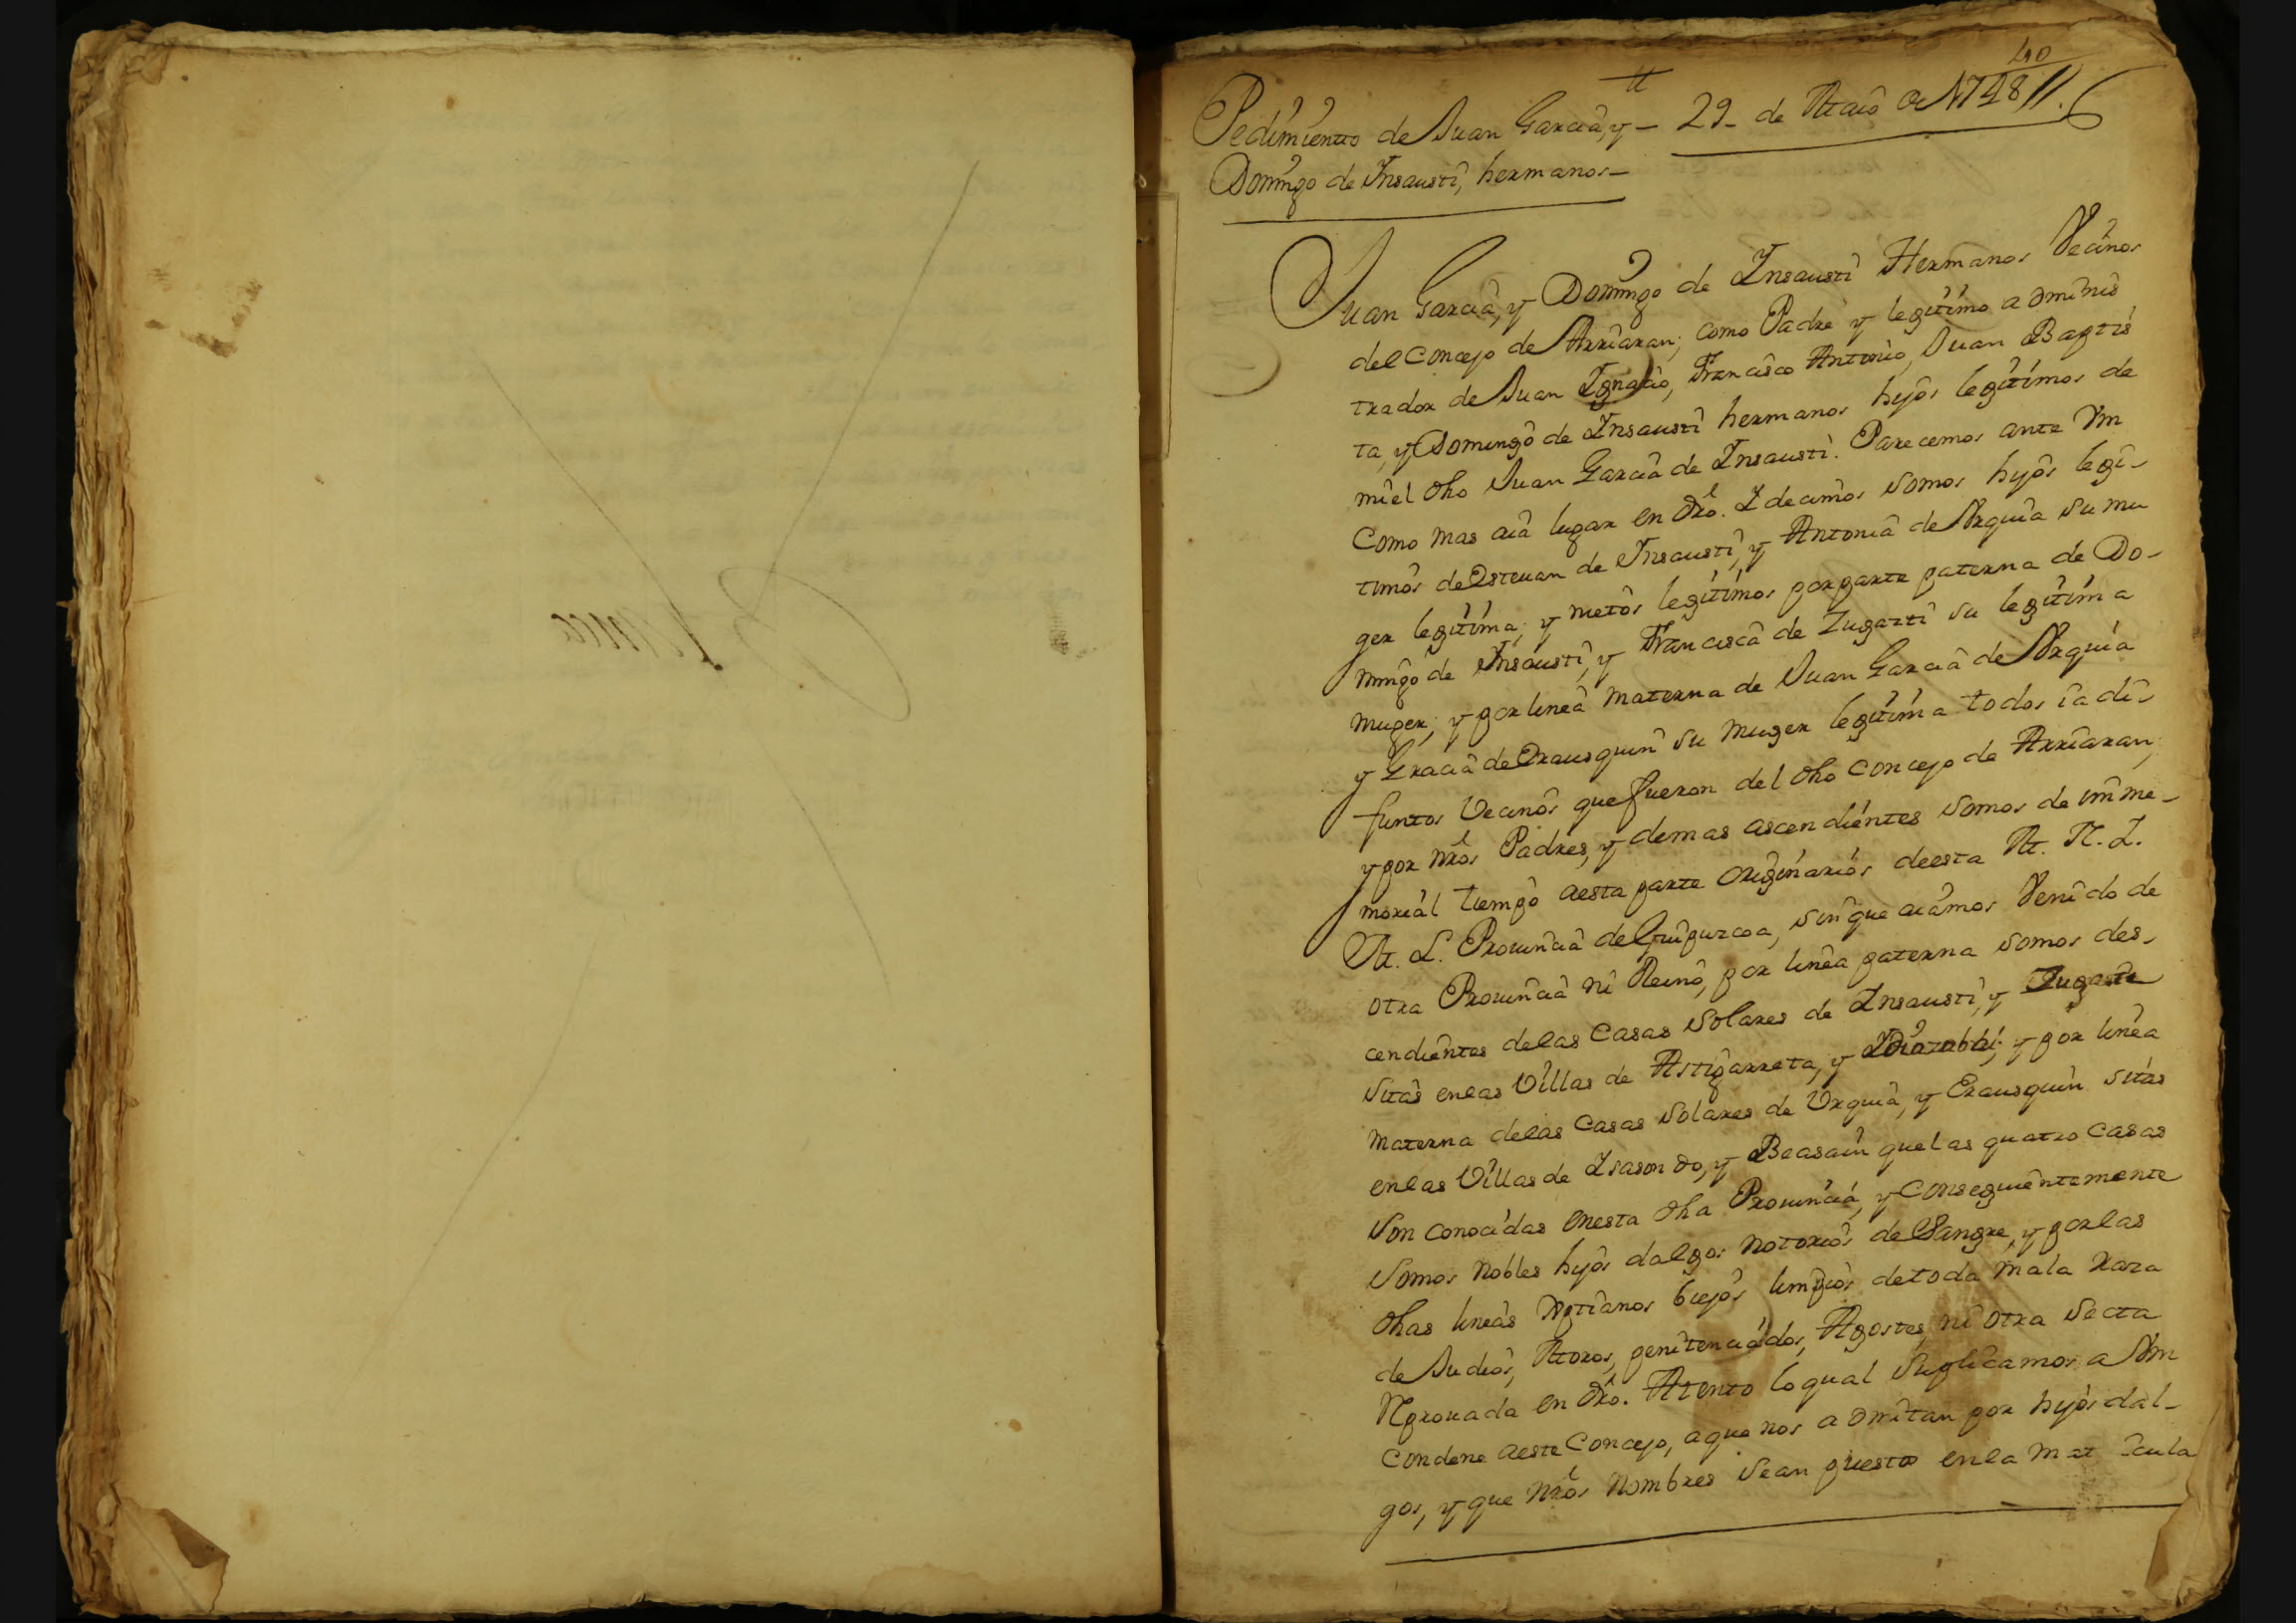 40
Pedimiento de Juan Garcia, y - 29- de Maio de 1748 //.
Domingo de Insausti, hermanos-
Juan Garcia, y Domingo de Insausti Hermanos Vecinos
del Concejo de Arriaran; como Padre y legitimo adminis
trador de Juan Ignacio, Francisco Antonio, Juan Baptis
ta, y Domingo de Insausti hermanos hijos legitimos de
mi el dho Juan Garcia de Insausti. Parecemos ante Vm
Como mas aia lugar en dro. I decimos somos hijos legi-
timos de Estevan de Insausti, y Antonia de Urquia su mu
ger legitima; y nietos legitimos por parte paterna de Do-
mingo de Insausti, y Francisca de Zugasti su legitima
muger; y por linea materna de Juan Garcia de Urquia
y Gracia de Erausquin su muger legitima todos ia di-
funtos Vecinos que fueron del dho Concejo de Arriaran,
y por nros Padres, y demas ascendientes somos de imme-
morial tiempo aesta parte originarios deesta M. N. I.
M. L. Provincia de Guipuzcoa, sin que aiamos Venido de
otra Provincia ni Reino, por linea paterna somos des-
cendientes delas Casas Solares de Insausti, y
sitas enlas Villas de Astigarreta, y y por linea
materna delas Casas Solares de Urquia, y Erausquin sitas
enlas Villas de Isasondo, y Beasain quelas quatro Casas
son conocidas enesta dha Provincia, y Conseguientemente
somos Nobles hijos dalgos notorios de Sangre, y porlas
dhas lineas Xptianos biejos limpios detoda mala raza
de Judios, Moros, penitenciados, Agostes, ni otra Secta
Reprovada en dro. Atento loqual Suplicamos a Vm
Condene aeste Concejo, aque nos admitan por hijos dal-
gos, y que nros Nombres sean puestos enla